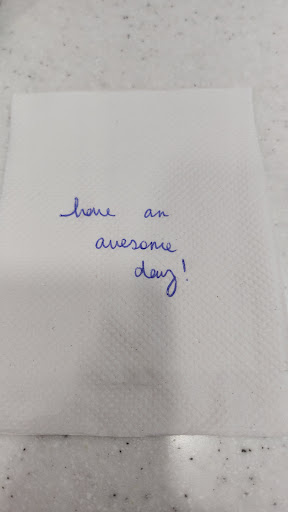 have an
awesome
day!